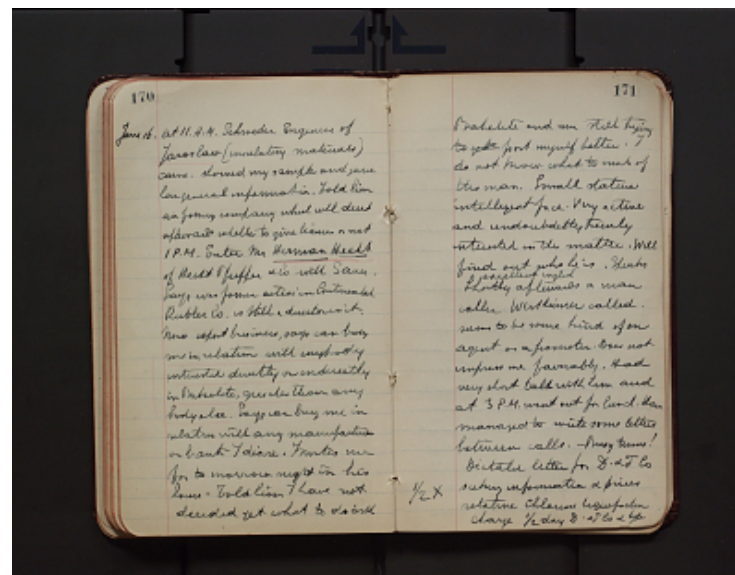 170
June 16. at 11. A.M. Schroeder Engineer of
Jaroslaw (insulating materials)
came. showed my samples and gave
him general information. Told him
am forming company which will decide
afterwards whether to give licenses or not
1 P.M. Enter Mr Herman Hecht
of Hecht Pfeiffer & Co with Saxe.
Says was former active in Continental
Rubber Co. is still a director in it.
Now export business, says can bring
me in relation with anybody
interested directly or indirectly
in Bakelite, greater than any
body else. Says can bring me in
relation with any manufacturer
or bank I desire. Invites me
for to morrow night in his
house. Told him I have not
decided yet what to do with
171
Bakelite and am still trying
to post myself better. I
do not know what to make of
the man. Small stature
intelligent face. Very active
and undoubtedly keenly
interested in the matter. Will
find out who he is. Speaks
excellent english
Shortly afterwards a man
called Wertheimer called.
seems to be some kind of an
agent or a promoter. Does not
impress me favorably. Had
very short talk with him and
at 3 P.M. went out for lunch. Have
managed to write some letters
between calls. - Busy times!
Dictated letter for D. & F. Co
asking information & prices
relative Chlorine liquefaction
1/2 X
Charge 1/2 day